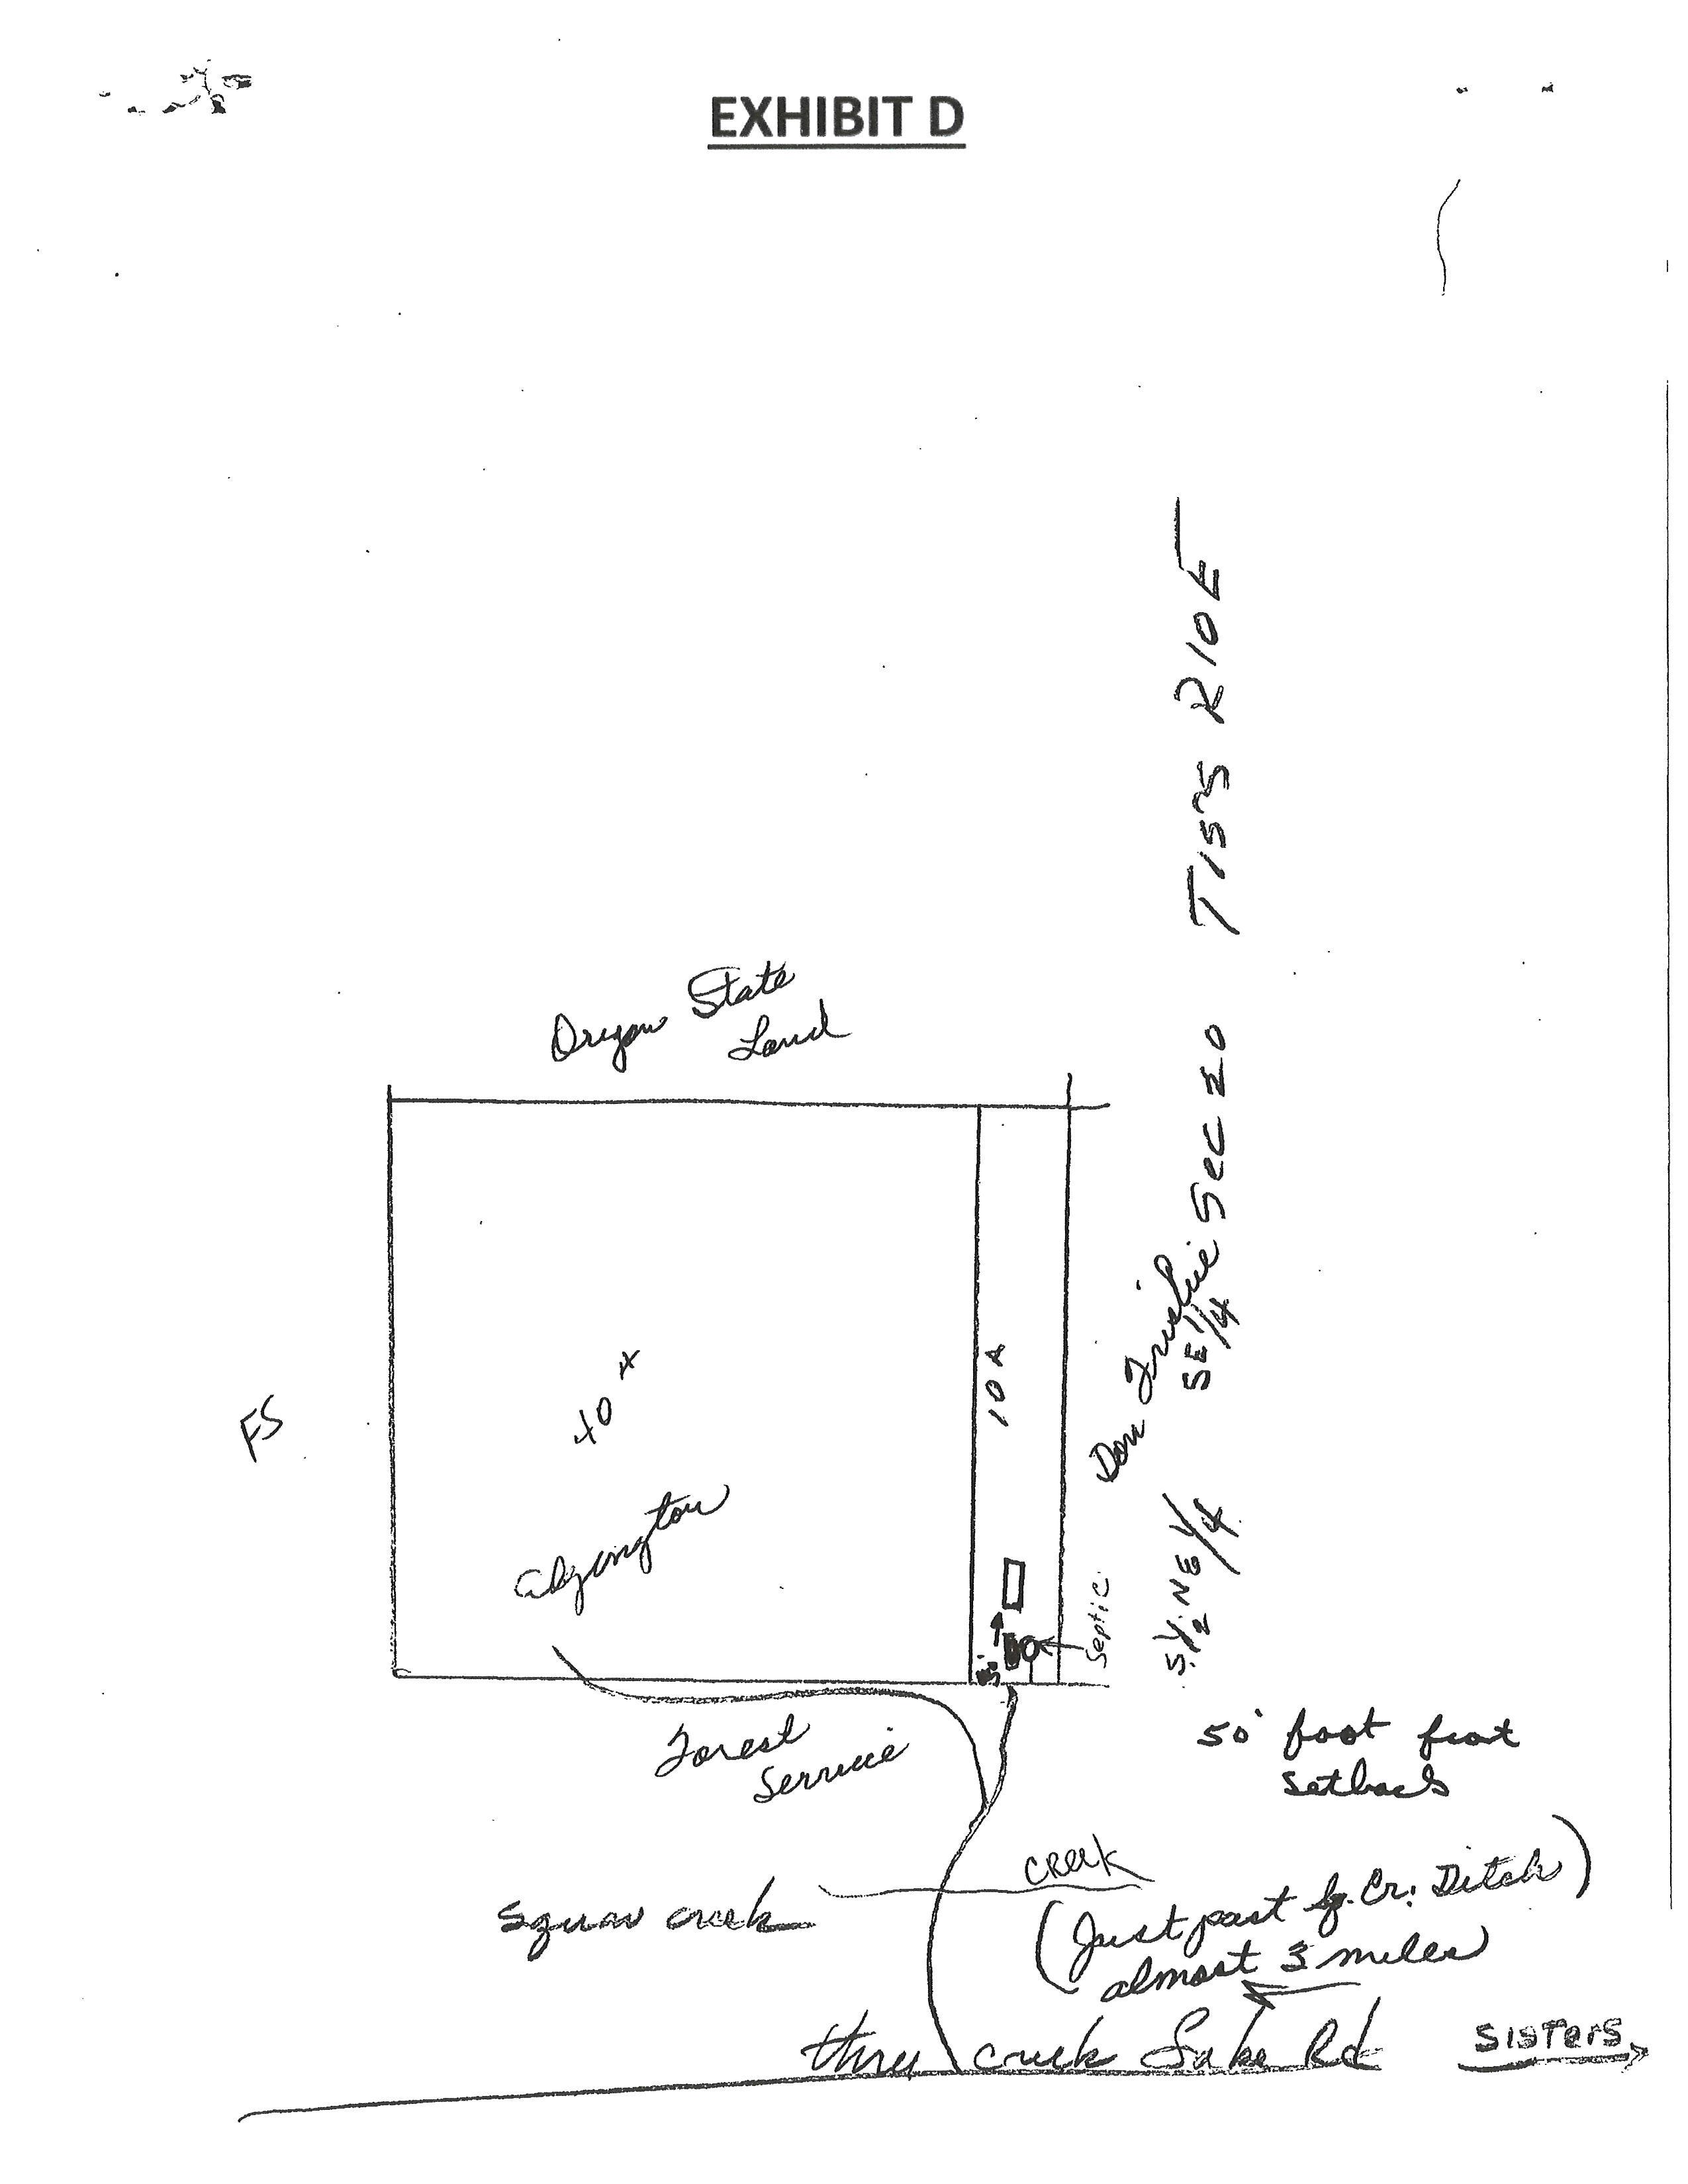 EXHIBIT D
T15S R10E
Oregon State
Land
SEC 20
SE 1/4
S 1/2 NE 1/4
Don
FS
40 A
10 A
Septic
Forest
Service
50' foot front
setback
creek
Squaw creek
(Just past Sq. Cr. Ditch)
almost 3 miles
three creek Lake Rd
SISTERS